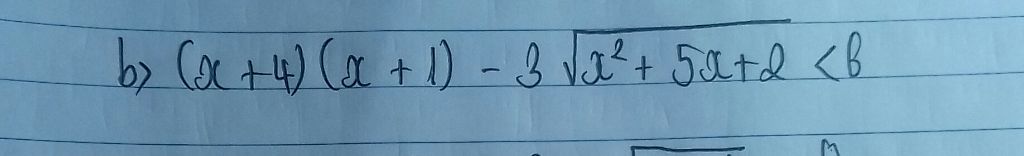 b) (x+4)(x+1) - 3√(x²+5x+2) < 6